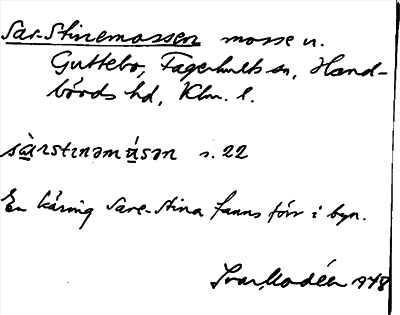 Sar-Stinemossen mosse n.
Guttebo, Fagerhults sn, Hand-
börds hd, Klm. l.
sàrstɩnəmúsən s. 22
En käring Sare-Stina fanns förr i byn.
Ivar Modéer 1948